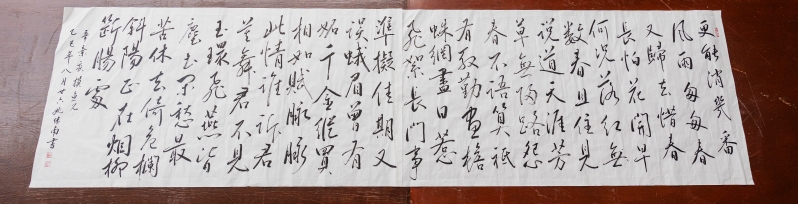 更能消幾番
風雨匆匆春
又歸去惜春
長怕花開早
何況落紅無
數春且住見
說道天涯芳
草無歸路怨
春不語算祇
有殷勤畫檐
蛛網盡日惹
飛絮長門事
準擬佳期又
誤蛾眉曾有
妬千金縱買
相如賦脉脉
此情誰訴君
莫舞君不見
玉環飛燕皆
塵土閑愁最
苦休去倚危欄
斜陽正在烟柳
斷腸處
辛棄疾摸魚兒
乙巳年八月廿六 南書